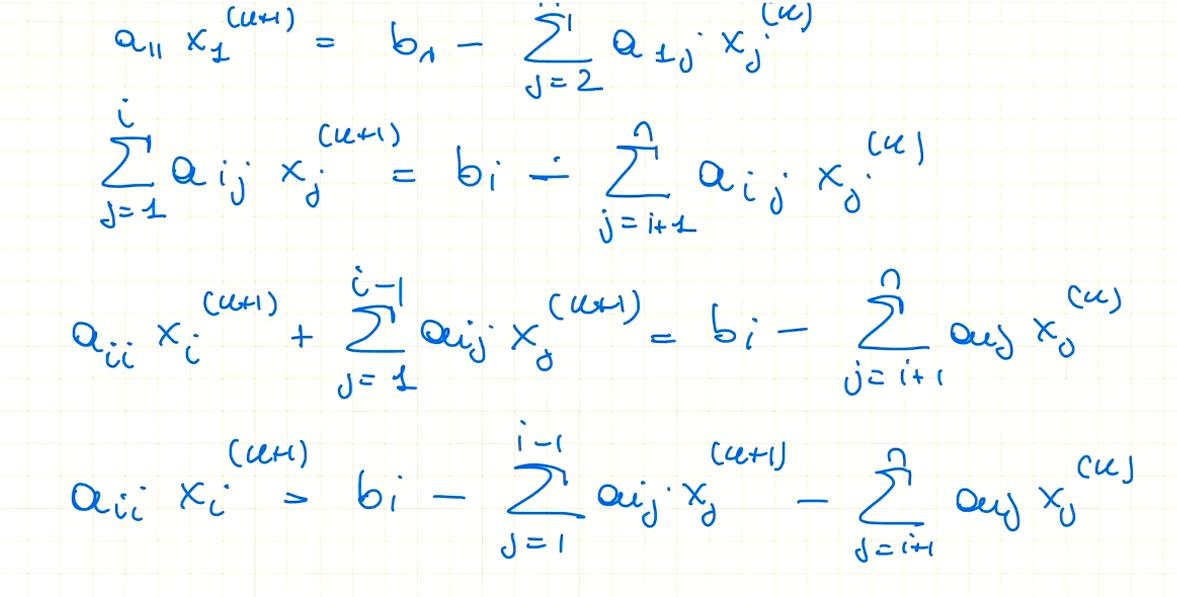 a₁₁ x₁^(k+1) = b₁ - ∑_{j=2}^{n} a_{1j} x_j^(k)
∑_{j=1}^{i} a_{ij} x_j^(k+1) = b_i - ∑_{j=i+1}^{n} a_{ij} x_j^(k)
a_{ii} x_i^(k+1) + ∑_{j=1}^{i-1} a_{ij} x_j^(k+1) = b_i - ∑_{j=i+1}^{n} a_{ij} x_j^(k)
a_{ii} x_i^(k+1) = b_i - ∑_{j=1}^{i-1} a_{ij} x_j^(k+1) - ∑_{j=i+1}^{n} a_{ij} x_j^(k)